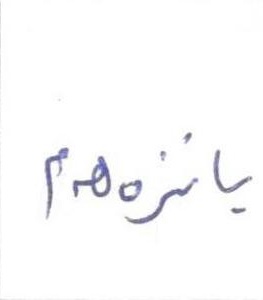 پانزدهم